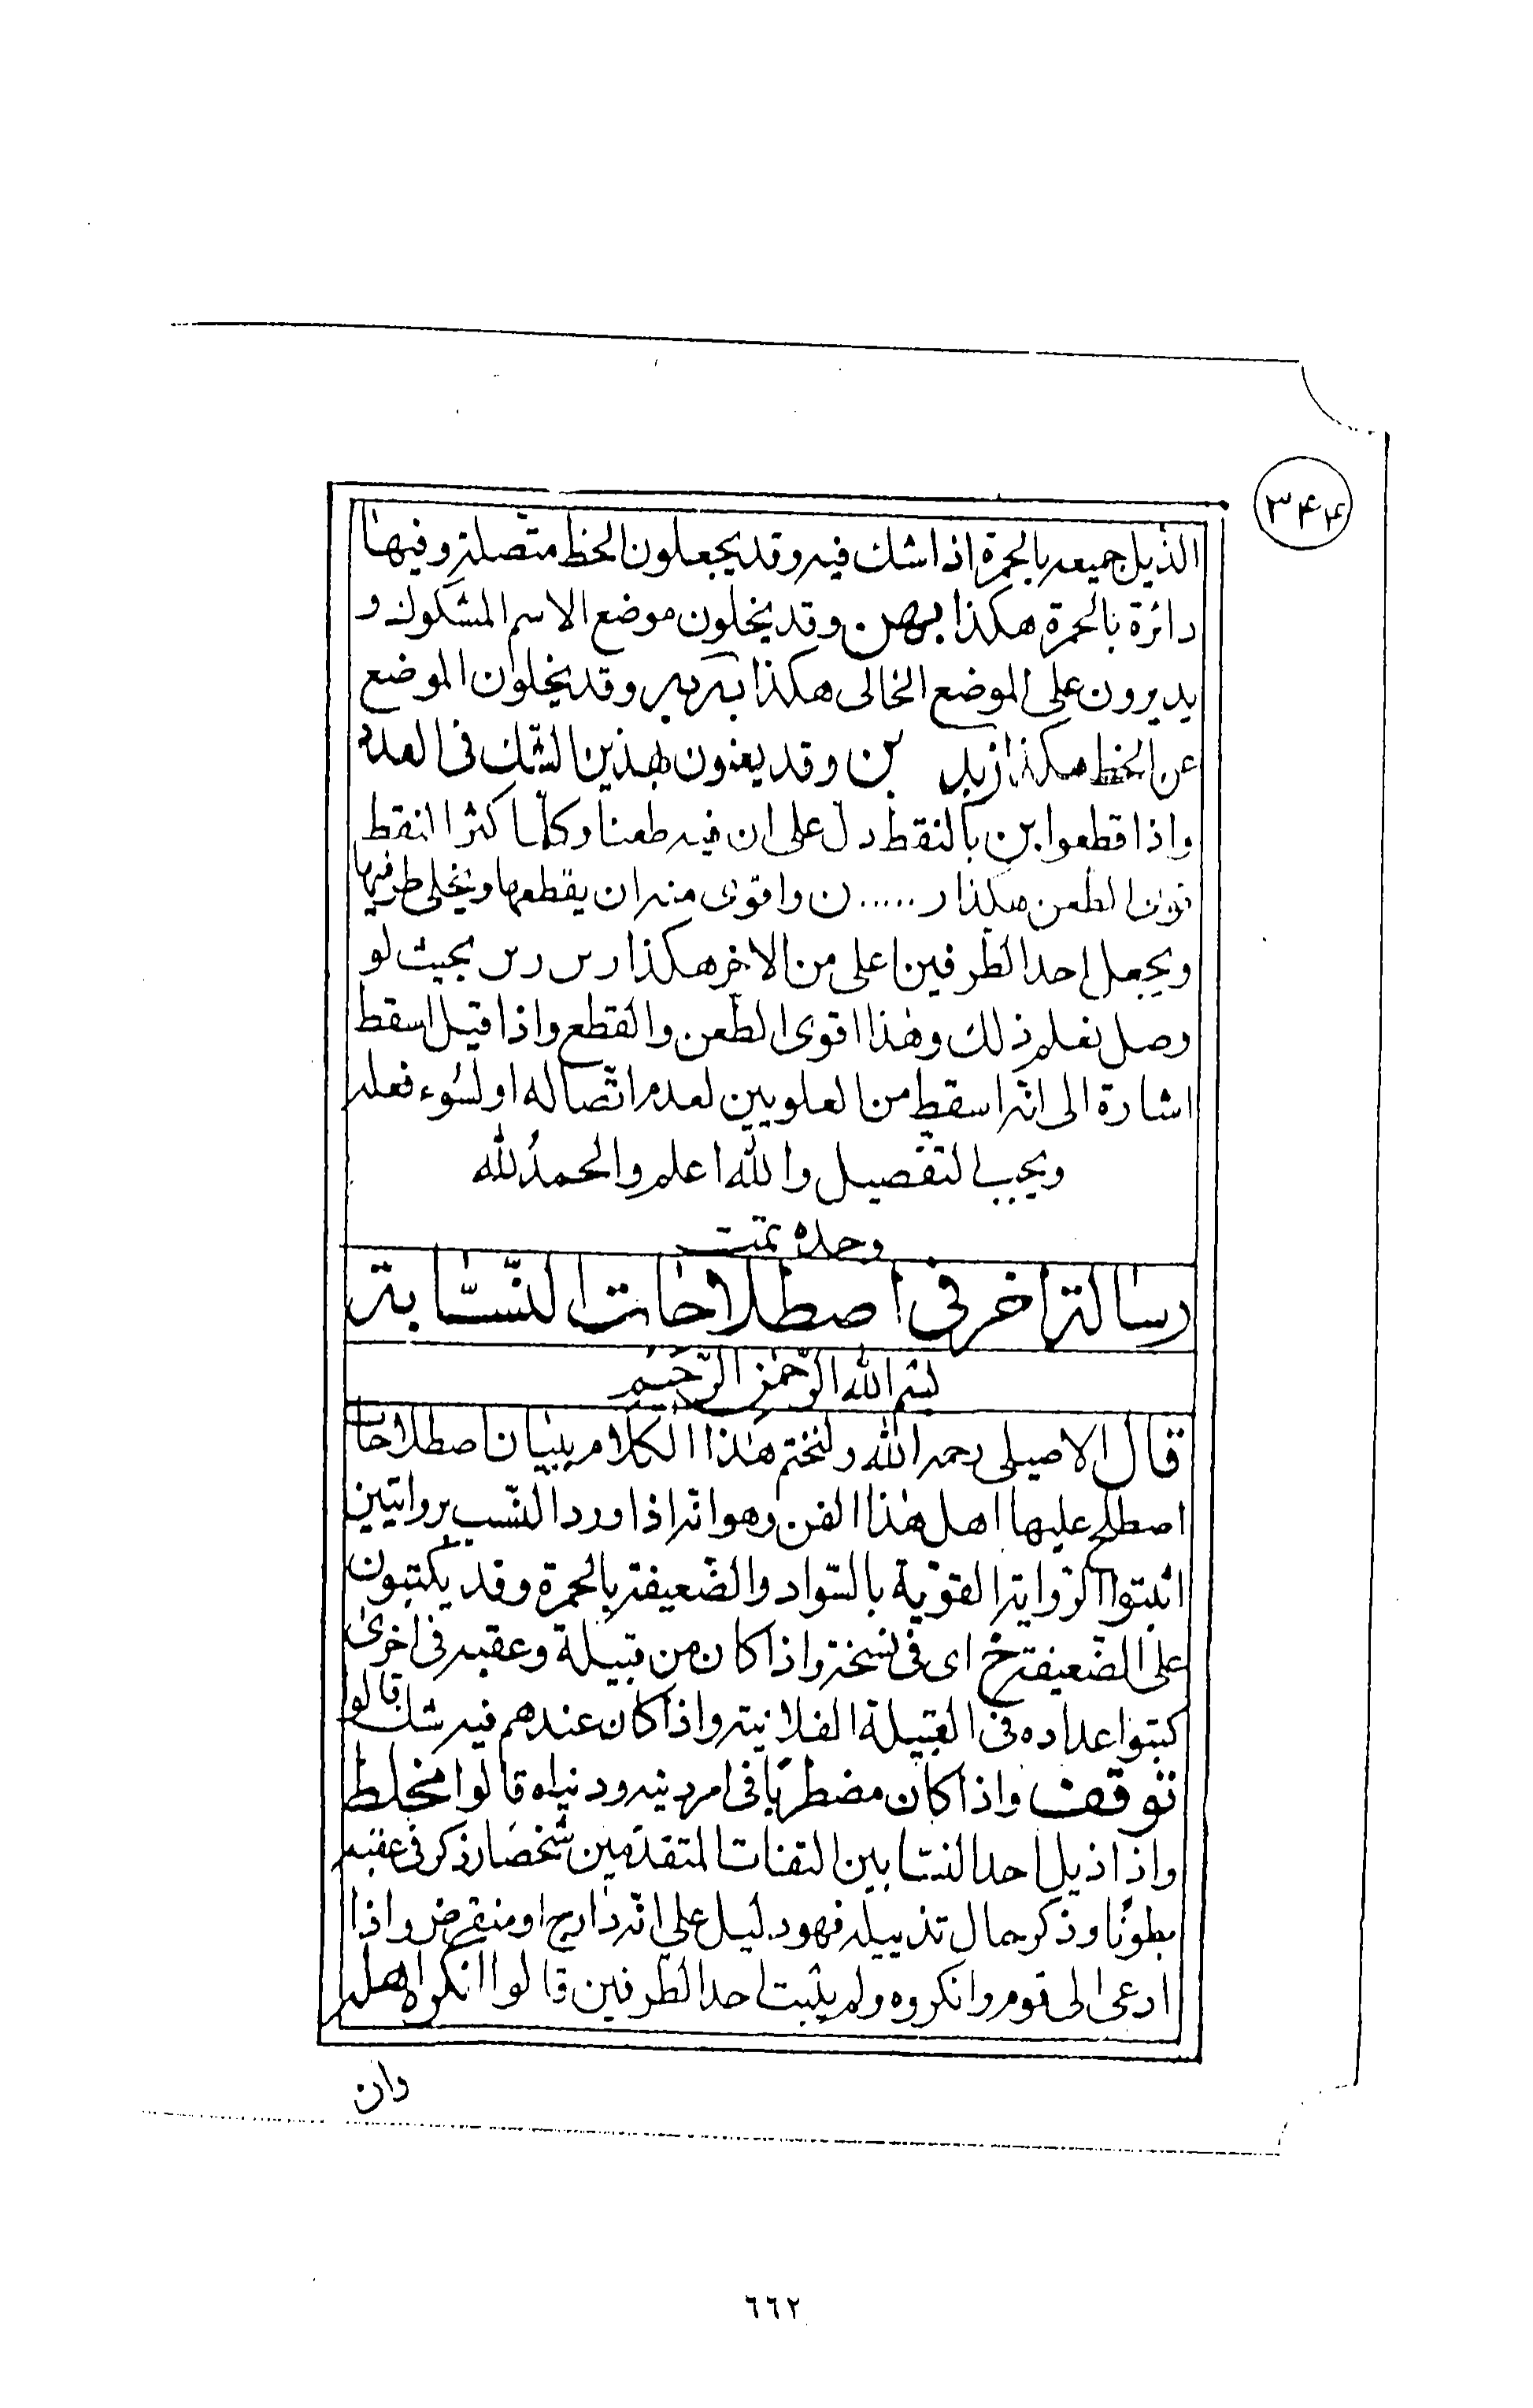 ٣۴۴
الذيل جميعه بالحمرة اذا شك فيه وقد يجعلون الخط متّصلة وفيها
دائرة بالحمرة هكذا وقد يخلون موضع الاسم المشكوك و
يديرون على الموضع الخالى هكذا وقد يخلون الموضع
عن الخط هكذا زيد بن وقد يعنون بهذين الشك فى العدة
واذا قطعوا بن بالنقط دل على ان فيه طعنا وكلّما كثرا النقط
الطعن هكذا ر.....ن واقوى منه ان يقطعها ويخلى طرفيها
ويجعل احد الطرفين اعلى من الاخر هكذا بحيث لو
وصل نعلم ذلك وهٰذا اقوى الطعن والقطع واذا قيل اسقط
اشارة الى انّه اسقط من العلويين لعدم اتّصاله او لسُوء فعله
ويجب التفصيل والله اعلم والحمدُ لله
وحده تمّت
رسالة اخر فى اصطلاحات النّسّابة
بسم الله الرّحمٰن الرّحيم
قال الاصيلى رحمه الله ولنختم هٰذا الكلام ببيان اصطلاحات
اصطلح عليها اهل هٰذا الفن وهو انّه اذا ورد النّسب بروايتين
اثبتوا الرّواية القويّة بالسّواد والضّعيفة بالحمرة وقد يكتبون
على الضّعيفة خ اى فى نسخة واذا كان من قبيلة وعقبه فى اخرىٰ
كتبوا عداده فى القبيلة الفلانية واذا كان عندهم فيه شك قالوا
نتوقف واذا كان مضطربًا فى امر دينه ودنياه قالوا مخلط
واذا ذيل احد النسّابين الثقات المتقدّمين شخصًا وذكر فى عقبه
بطونًا وذكر حال تذييله فهو دليل على انّه دارج او منقرض واذا
ادعى الى قوم وانكروه ولم يثبت احد الطرفين قالوا انكره اهله
وان
٦٦٢